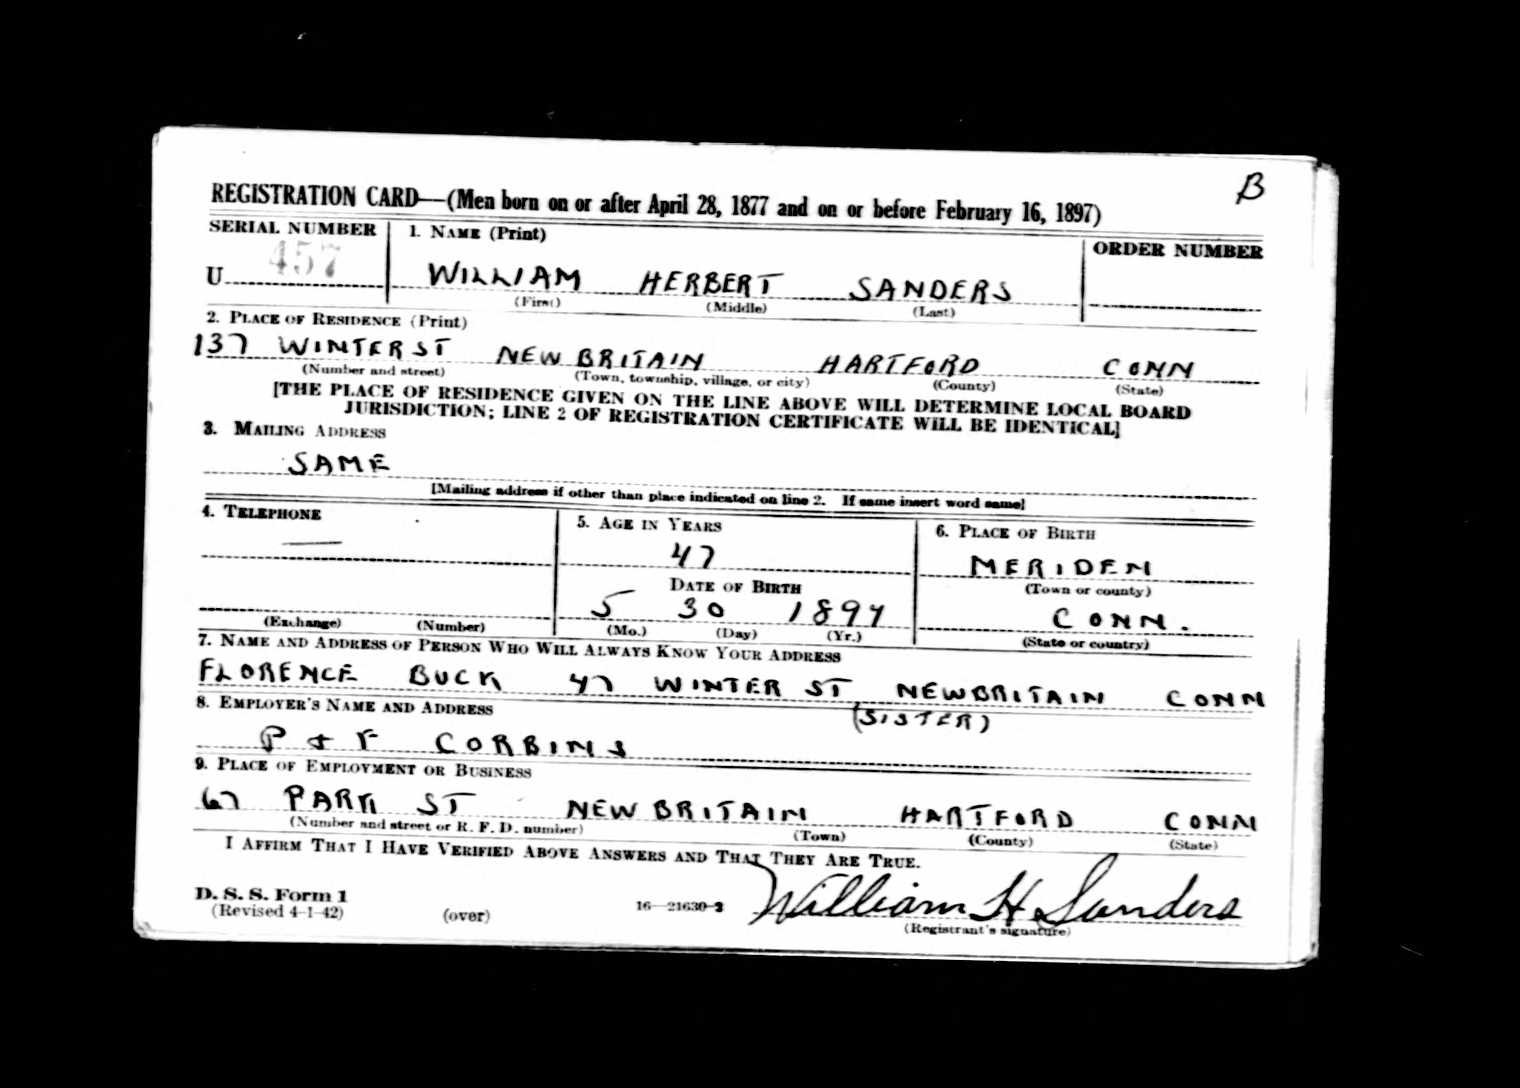 B
REGISTRATION CARD—(Men born on or after April 28, 1877 and on or before February 16, 1897)
SERIAL NUMBER 1. NAME (Print) ORDER NUMBER
U 457 WILLIAM HERBERT SANDERS
(First) (Middle) (Last)
2. PLACE OF RESIDENCE (Print)
137 WINTER ST NEW BRITAIN HARTFORD CONN
(Number and street) (Town, township, village, or city) (County) (State)
[THE PLACE OF RESIDENCE GIVEN ON THE LINE ABOVE WILL DETERMINE LOCAL BOARD
JURISDICTION; LINE 2 OF REGISTRATION CERTIFICATE WILL BE IDENTICAL]
3. MAILING ADDRESS
SAME
[Mailing address if other than place indicated on line 2. If same insert word same]
4. TELEPHONE 5. AGE IN YEARS 6. PLACE OF BIRTH
— 47 MERIDEN
DATE OF BIRTH (Town or county)
5 30 1894 CONN.
(Exchange) (Number) (Mo.) (Day) (Yr.) (State or country)
7. NAME AND ADDRESS OF PERSON WHO WILL ALWAYS KNOW YOUR ADDRESS
FLORENCE BUCK 47 WINTER ST NEW BRITAIN CONN
8. EMPLOYER'S NAME AND ADDRESS (SISTER)
P & F CORBINS
9. PLACE OF EMPLOYMENT OR BUSINESS
67 PARK ST NEW BRITAIN HARTFORD CONN
(Number and street or R. F. D. number) (Town) (County) (State)
I AFFIRM THAT I HAVE VERIFIED ABOVE ANSWERS AND THAT THEY ARE TRUE.
D. S. S. Form 1
(Revised 4-1-42) (over) 16—21630-2 William H. Sanders
(Registrant's signature)